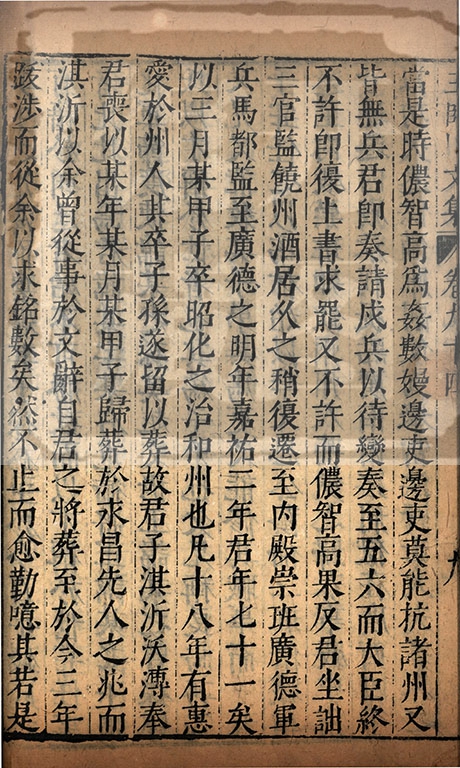 文集 卷九十四 九
當是時儂智高爲姦數嫚邊吏邊吏莫能抗諸州又
皆無兵君卽奏請戍兵以待變奏至五六而大臣終
不許卽復上書求罷又不許而儂智高果反君坐詘
三官監饒州酒居久之稍復遷至内殿崇班廣德軍
兵馬都監至廣德之明年嘉祐二年君年七十一矣
以三月某甲子卒昭化之治和州也凡十八年有惠
愛於州人其卒子孫遂留以葬故君子淇沂沃漙奉
君喪以某年某月某甲子歸葬於永昌先人之兆而
淇沂以余曾從事於文辭自君之將葬至於今三年
跋涉而從余以求銘數矣然不止而愈勤噫其若是